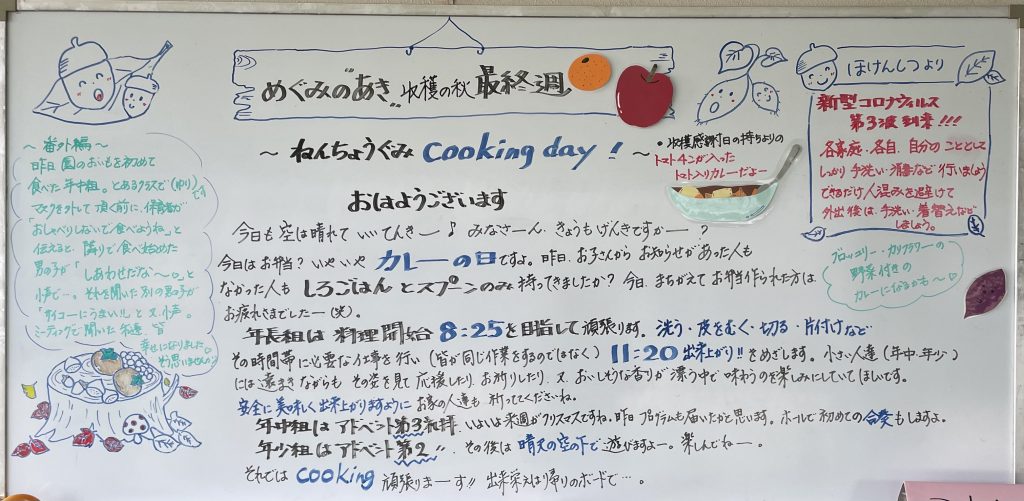 めぐみの"あき" 収穫の秋 最終週
～ ねんちょうぐみ cooking day！ ～
・収穫感謝日の持ちよりの
トマト缶が入った
トマト入りカレーだよー
おはようございます
今日も空は晴れて いいてんきー♪ みなさーん、きょうもげんきですかー？
今日はお弁当？いやいや カレーの日ですよ。昨日、お子さんからお知らせがあった人も
なかった人も しろごはん とスプーンのみ 持ってきましたか？ 今日、まちがえてお弁当作られた方は
お疲れさまでしたー(笑)。
年長組は 料理開始 8:25を目指して頑張ります。洗う・皮をむく・切る・片付けなど
その時間帯に必要な仕事を行い（皆が同じ作業をするのではなく） 11:20 出来上がり!! をめざします。小さい人達（年中、年少）
には遠まきながらも その姿を見て 応援したり、お祈りしたり、又、おいしそうな香りが漂う中で 味わうのを楽しみにしていてほしいです。
安全に美味しく出来上がりますように お家の人達も 祈っていてくださいね。
年中組は アドベント第3礼拝。いよいよ来週がクリスマスですね。昨日 プログラムも届いたかと思います。ホールで初めての合奏もしますよ。
年少組は アドベント第2 〃 、その後は 晴天の空の下で 遊びますよー。楽しんでねー。
それでは cooking 頑張りまーす!! 出来栄えは帰りのボードで…。
～番外編～
昨日 園のおいもを初めて
食べた年中組。とあるクラスで（ゆり）です
マスクを外して頂く前に、保育者が
「おしゃべりしないで食べようね」と
伝えると、隣りで食べ始めた
男の子が「しあわせだな～。」と
小声で…。それを聞いた別の男の子が
「サイコーにうまい!!」と 又、小声。
ミーティングで聞いた 私達、皆
幸せになりました。
そう思いません？
ほけんしつより
新型コロナウィルス
第3波 到来!!!
各家庭、各自、自分のこととして
しっかり 手洗い・消毒など 行いましょう
できるだけ人混みを避けて
外出後は、手洗い・着替えなど
しましょう。
ブロッコリー・カリフラワーの
野菜付きの
カレーになるかも～♡